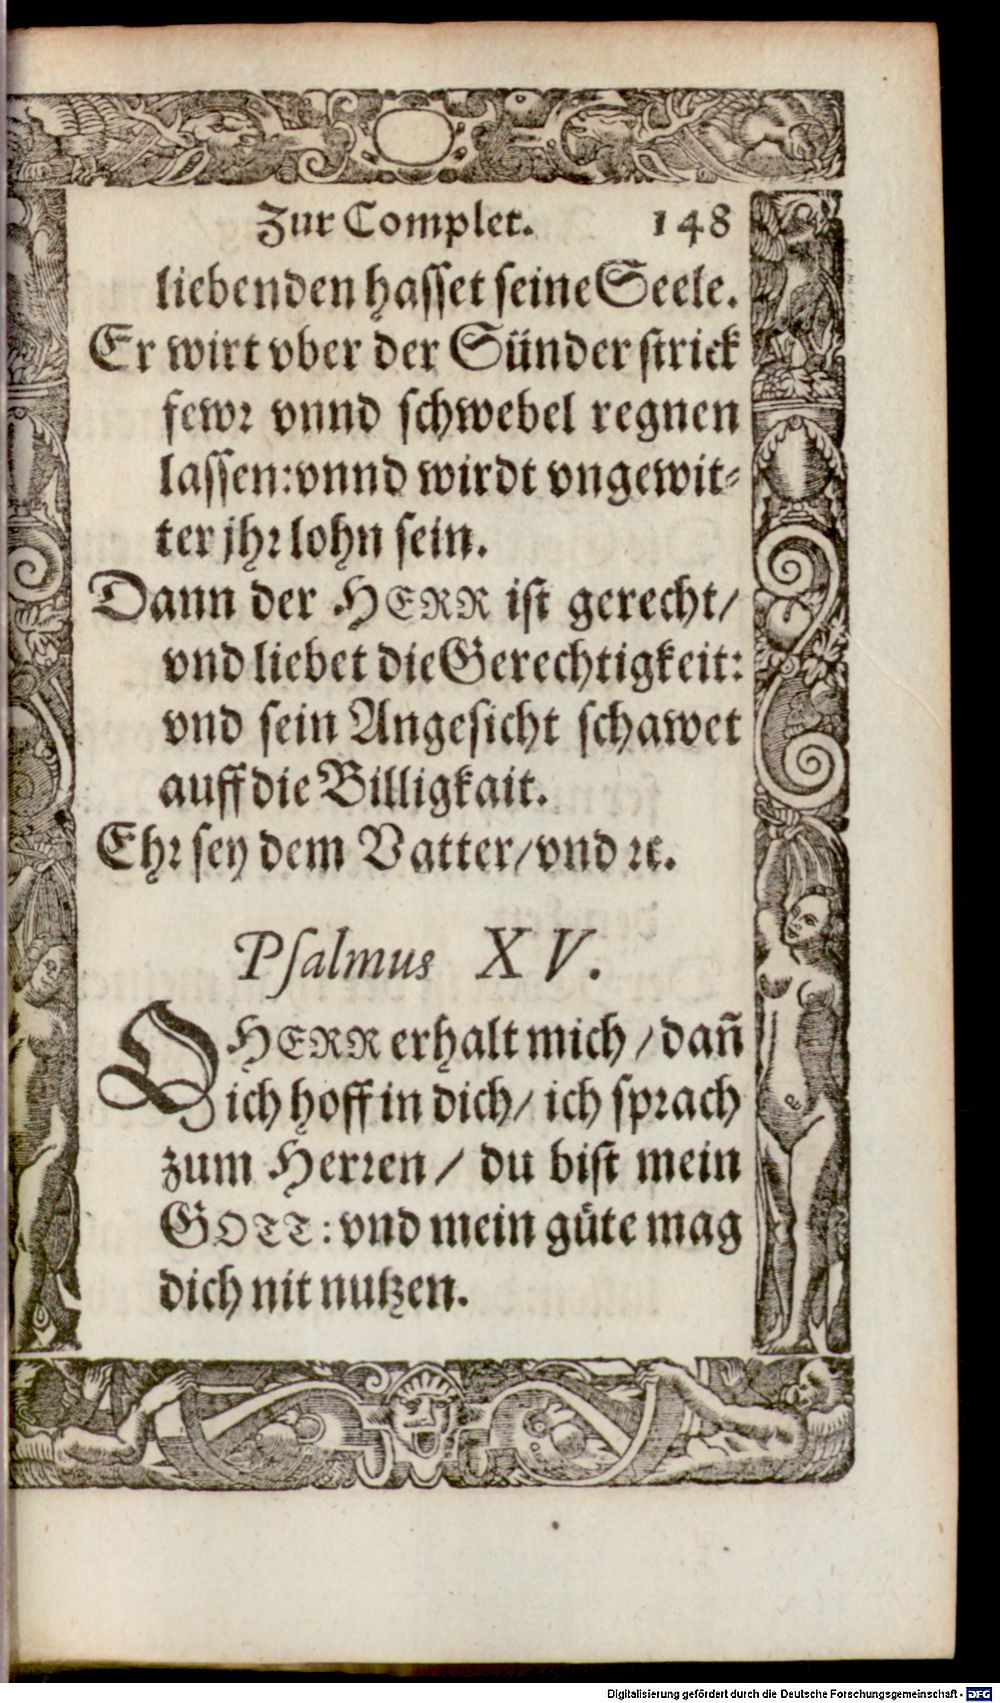 Zur Complet. 148
liebenden hasset seine Seele.
Er wirt vber der Sünder strick
fewr vnnd schwebel regnen
lassen: vnnd wirdt vngewit⸗
ter jhr lohn sein.
Dann der HERR ist gerecht/
vnd liebet die Gerechtigkeit:
vnd sein Angesicht schawet
auff die Billigkait.
Ehr sey dem Vatter/ vnd ꝛc.
Psalmus XV.
O HERR erhalt mich / dañ
ich hoff in dich/ ich sprach
zum Herren / du bist mein
GOTT: vnd mein güte mag
dich nit nutzen.
Digitalisierung gefördert durch die Deutsche Forschungsgemeinschaft - DFG